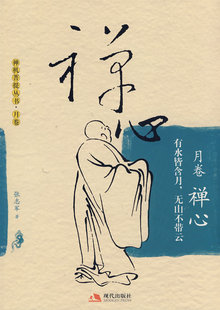 禅心
禅机菩提丛书·月卷
月卷 禅心
有水皆含月,无山不带云
张志军 著
现代出版社